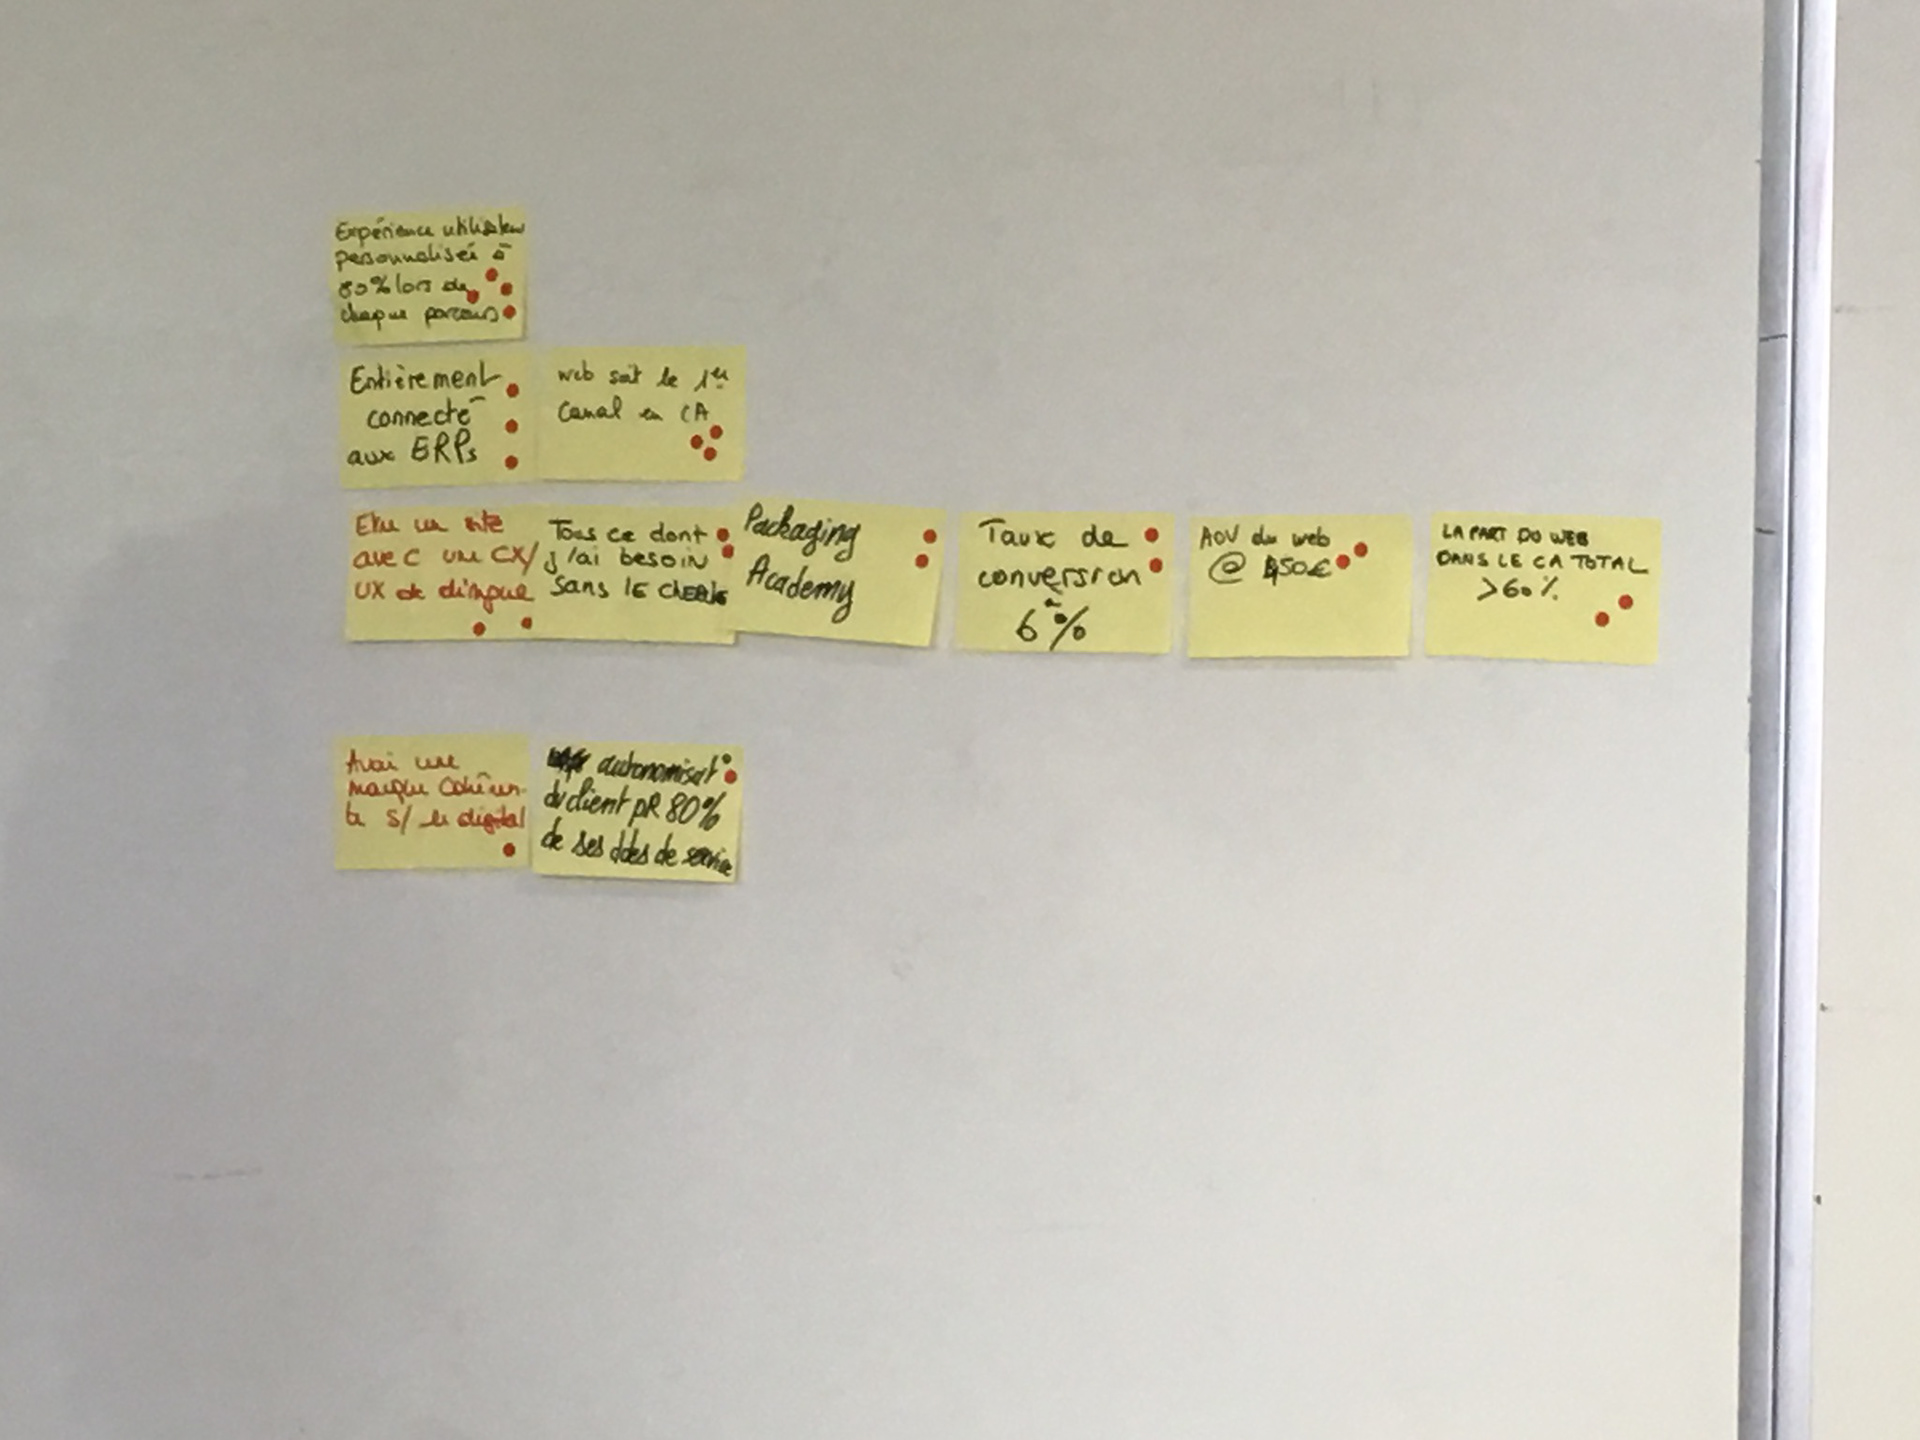 Expérience utilisateur
personnalisée à
80% lors de
chaque parcours
Entièrement
connecté
aux ERPs
web soit le 1er
Canal en CA
Etre un site
avec une CX/
UX de dingue
Tous ce dont
j'ai besoin
sans le chercher
Packaging
Academy
Taux de
conversion
à
6%
AOV du web
@ 450€
LA PART DU WEB
DANS LE CA TOTAL
>60%
Avoir une
marque cohéren-
te s/ le digital
autonomisat°
du client pR 80%
de ses ddes de service